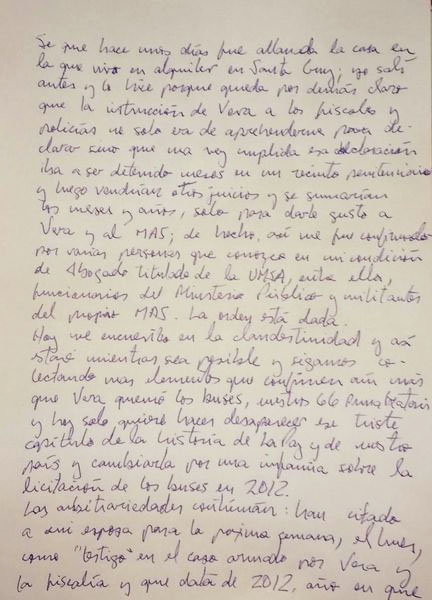 Se que hace unos días fue allanada la casa en
la que vivo en alquiler en Santa Cruz; yo salí
antes y lo hice porque queda por demás claro
que la instrucción de Vera a los fiscales y
policías no solo era de aprehenderme para de-
clarar sino que una vez cumplida esa declaración
iba a ser detenido meses en un recinto penitenciario
y luego vendrían otros juicios y se sumarían
los meses y años, solo para darle gusto a
Vera y al MAS; de hecho, así me fue confirmado
por varias personas que conozco en mi condición
de Abogado titulado de la UMSA, entre ellas,
funcionarios del Ministerio Público y militantes
del propio MAS. La orden está dada.
Hoy me encuentro en la clandestinidad y así
estaré mientras sea posible y sigamos co-
lectando mas elementos que confirmen aún más
que Vera quemó los buses, nuestros 66 Pumakataris
y hoy solo quiere hacer desaparecer ese triste
capítulo de la historia de La Paz y de nuestro
país y cambiarla por una infamia sobre la
licitación de los buses en 2012.
Las arbitrariedades continúan: han citado
a mi esposa para la próxima semana, el lunes,
como "testigo" en el caso armado por Vera y
la fiscalía y que data de 2012, año en que